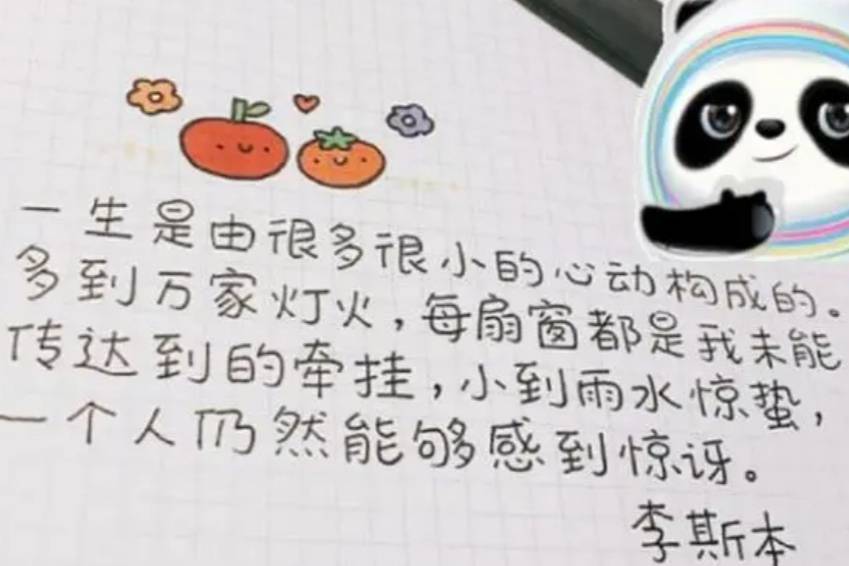 一生是由很多很小的心动构成的。
多到万家灯火，每扇窗都是我未能
传达到的牵挂，小到雨水惊蛰，
一个人仍然能够感到惊讶。
李斯本